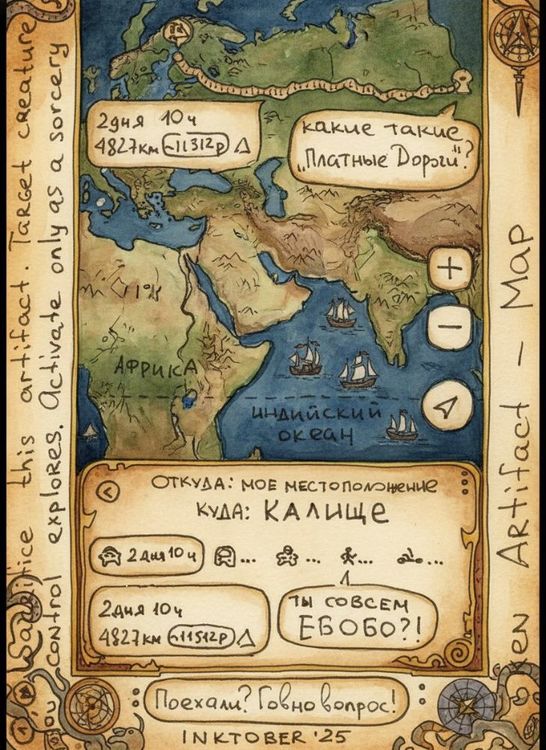 Sacrifice this artifact. Target creature
you control explores. Activate only as a sorcery
2дня 10ч
4827км 11312р
какие такие
„Платные Дороги"?
+
−
АФРИКА
ИНДИЙСКИЙ
океан
Artifact – Map
ОТКУДА: МОЕ МЕСТОПОЛОЖЕНИЕ
КУДА: КАЛИЩЕ
2дня 10ч
...
...
...
...
2дня 10ч
4827км 11512р
ТЫ СОВСЕМ
ЕБОБО?!
Поехали? Говно вопрос!
INKTOBER '25